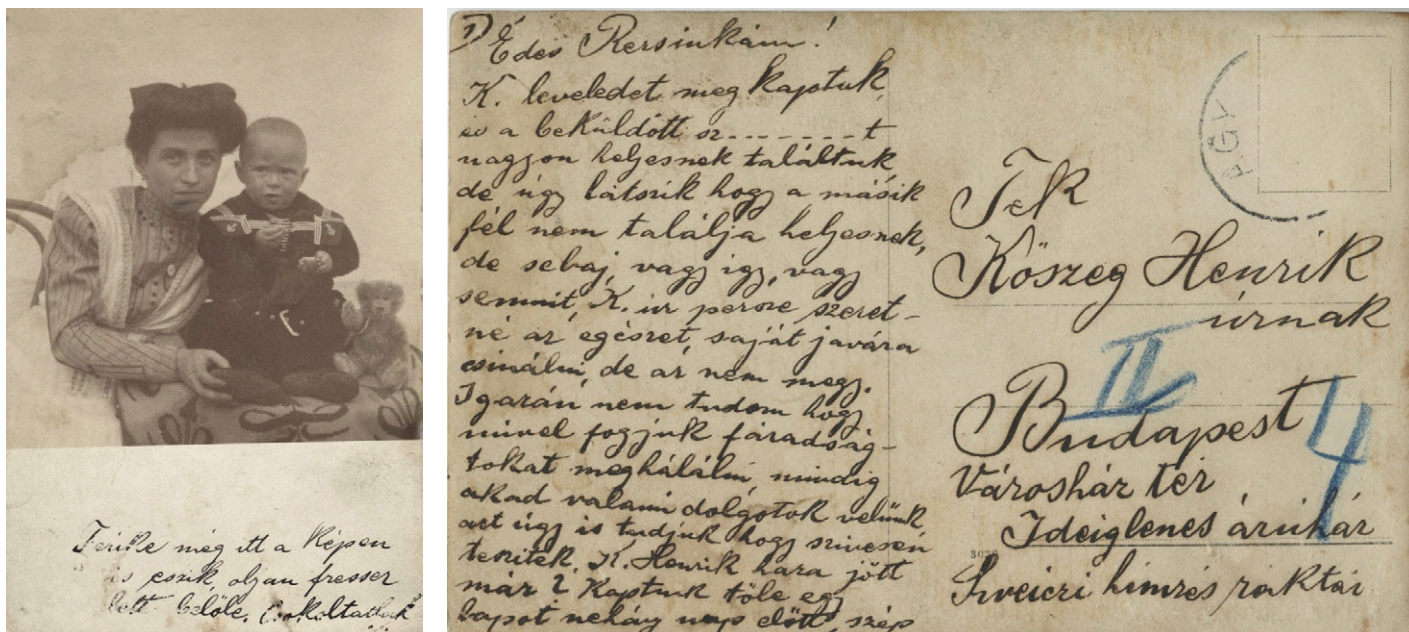 Terike még itt a képen
is eszik, olyan fresser
lett belőle. Csókoltatlak
1)
Édes Rersinkám!
K. leveledet meg kaptuk
és a beküldött sz--------t
nagyon heljesnek találtuk
de úgy látszik hogy a másik
fél nem találja heljesnek,
de sebaj, vagy igy, vagy
semmit, K. úr persze szeret-
né az egészet, saját javára
csinálni, de az nem megy.
Igazán nem tudom hogy
mivel fogjuk fáradság-
tokat meghálálni, mindig
akad valami dolgotok velünk
azt úgy is tudjuk hogy szivesen
teszitek. K. Henrik haza jött
már? Kaptunk töle egy
lapot nehány nap előtt, szép
ÁGY
Tek
Kőszeg Henrik
úrnak
II
Budapest
4
Városház tér
Ideiglenes áruház
3039
Sveiczi hímzés raktár